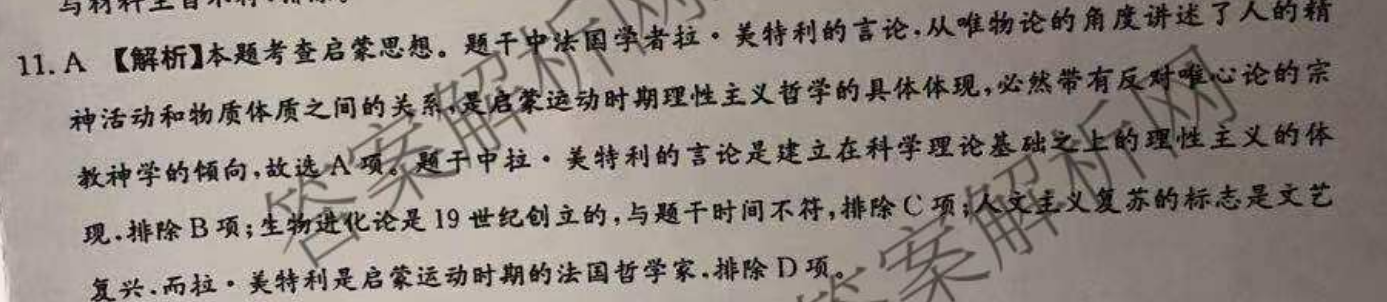 11. A 【解析】本题考查启蒙思想。题干中法国学者拉·美特利的言论,从唯物论的角度讲述了人的精
神活动和物质体质之间的关系,是启蒙运动时期理性主义哲学的具体体现,必然带有反对唯心论的宗
教神学的倾向,故选 A 项。题干中拉·美特利的言论是建立在科学理论基础之上的理性主义的体
现,排除 B 项;生物进化论是 19 世纪创立的,与题干时间不符,排除 C 项;人文主义复苏的标志是文艺
复兴,而拉·美特利是启蒙运动时期的法国哲学家,排除 D 项。
答案解析网
答案解析网